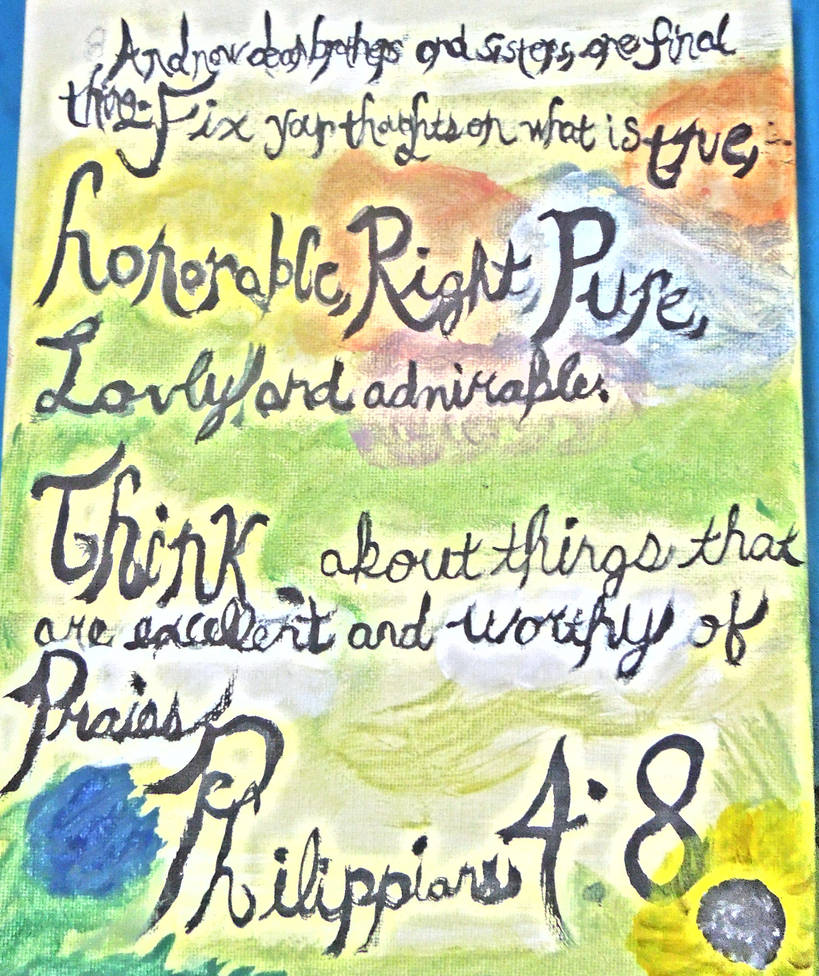 And now dear brothers and sisters, one final
thing: Fix your thoughts on what is true,
honorable, Right, Pure,
Lovly, and admirable.
Think about things that
are excellent and worthy of
Praise
Philippians 4:8